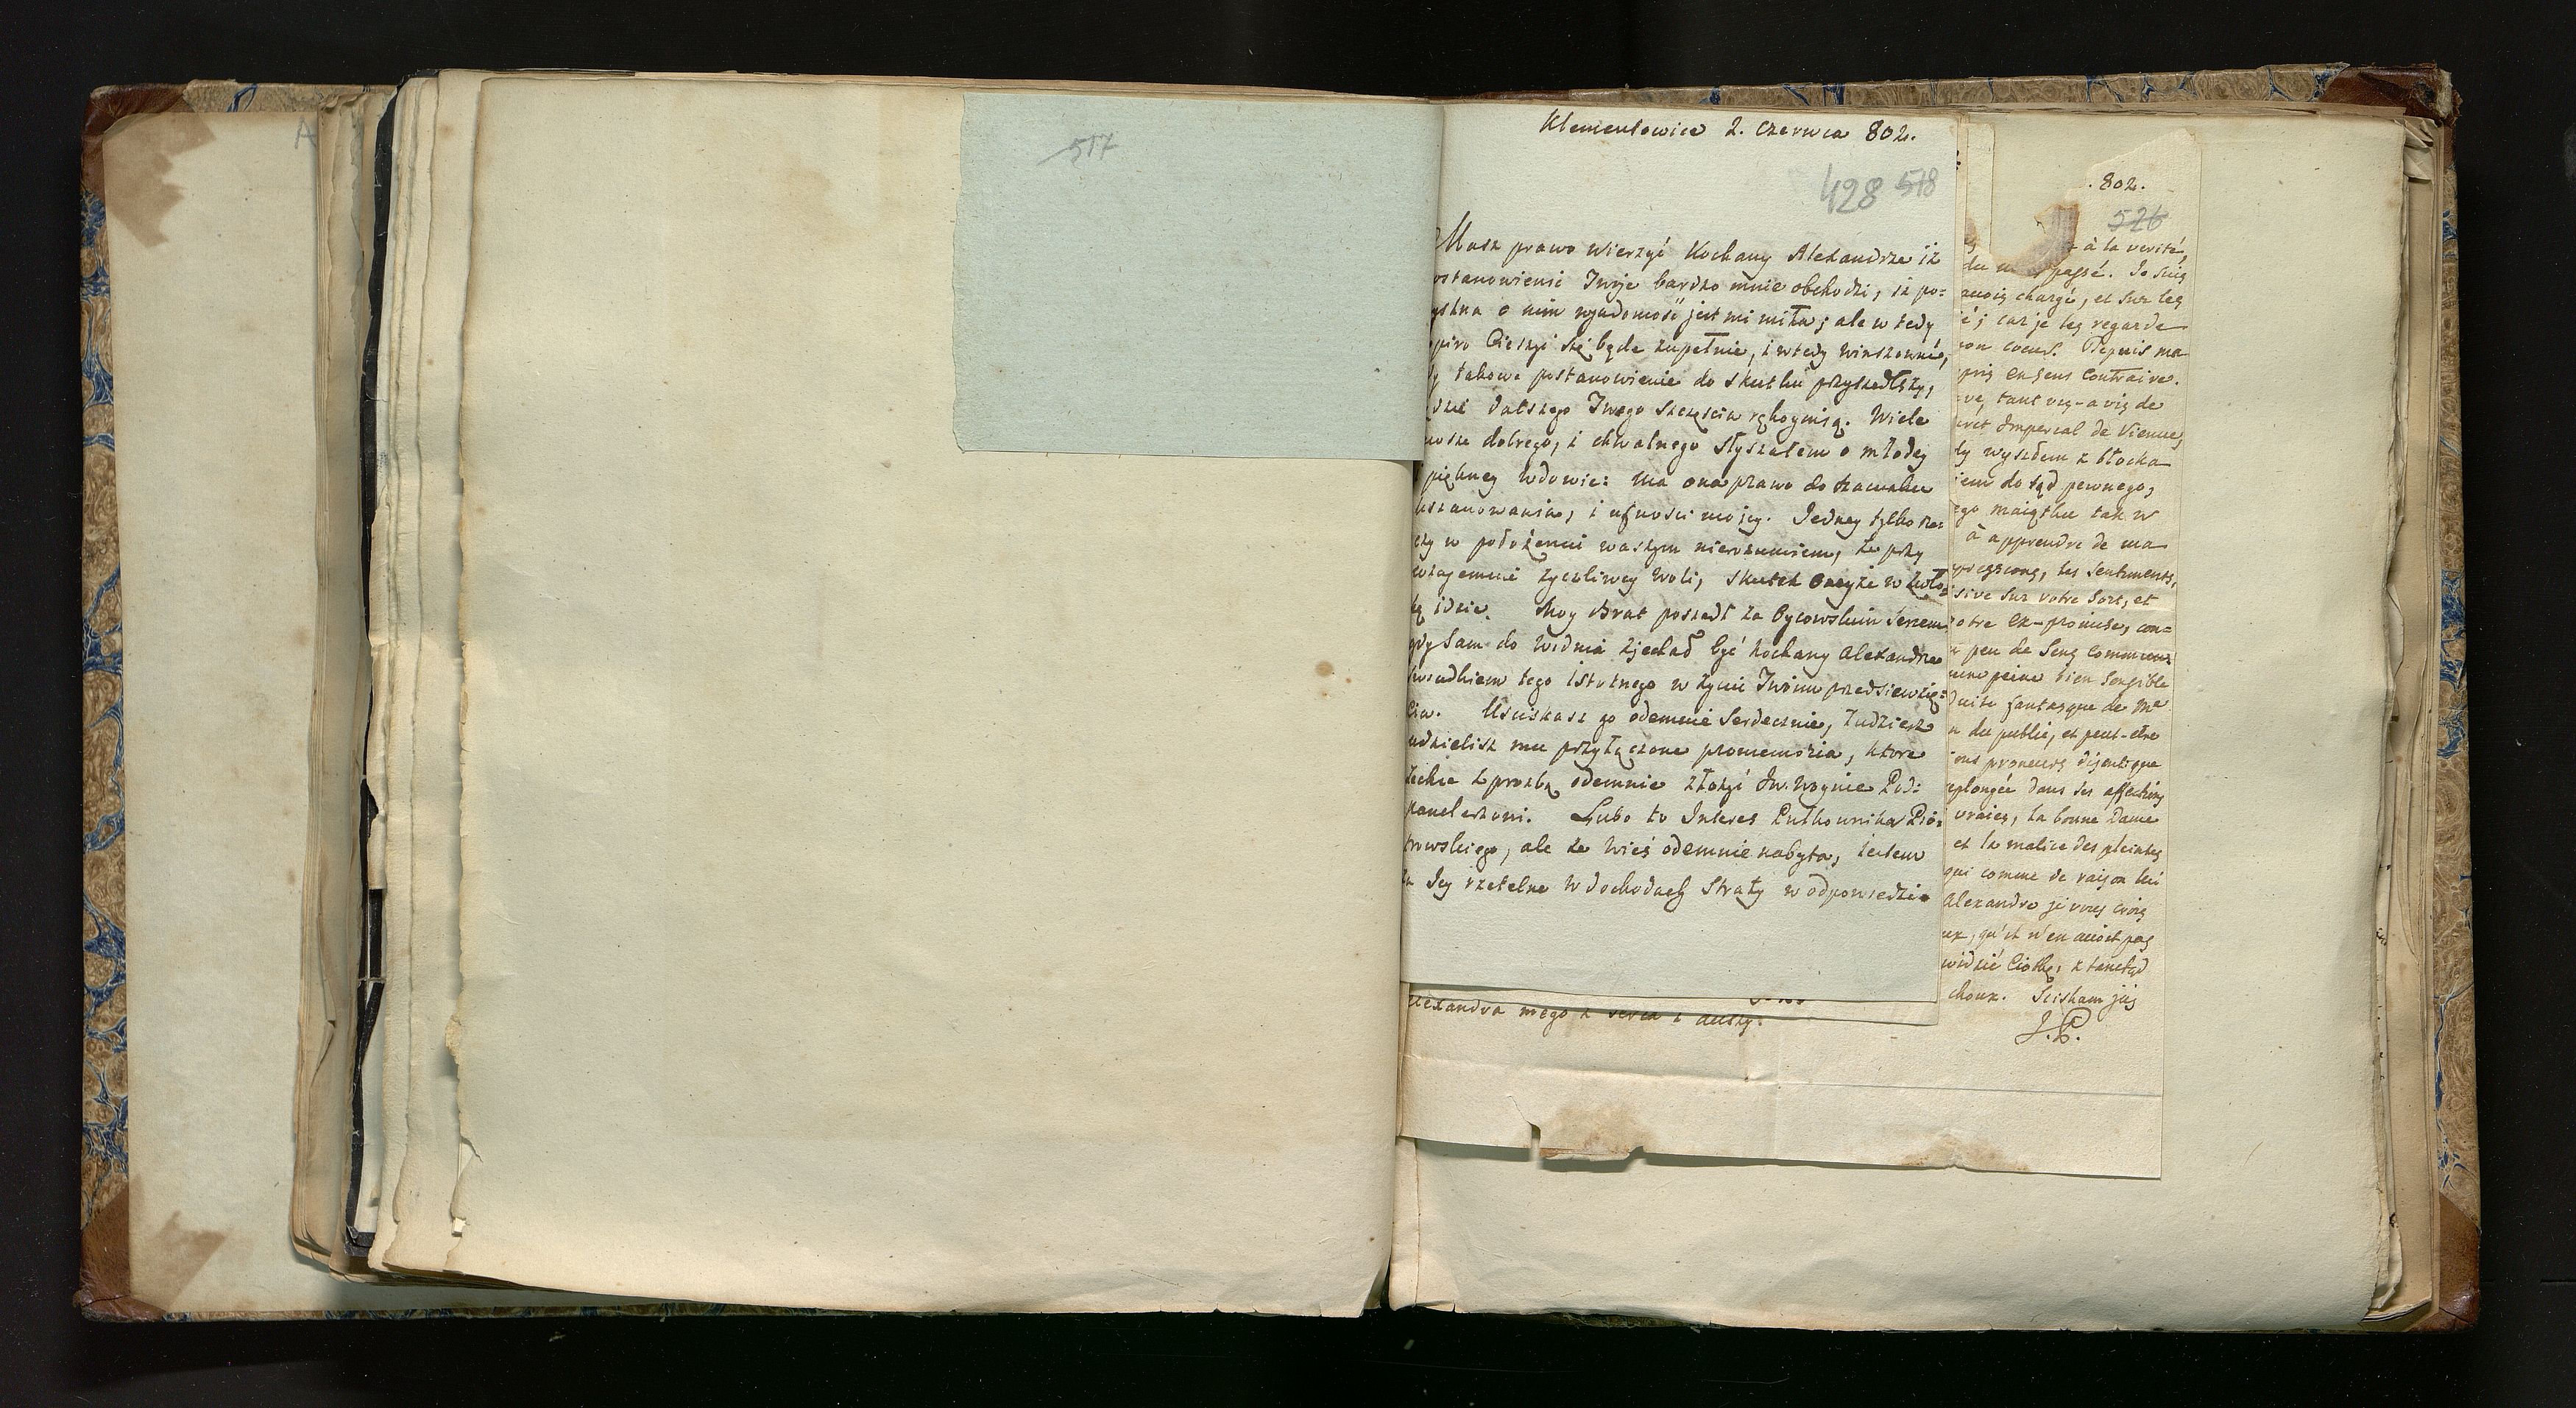 517
Klementowice 2. Czerwca 802.
428 518
Masz prawo wierzyć Kochany Alexandrze iż
ostanowienie Twoje bardzo mnie obchodzi, iż po=
yslna o nim wiadomość jest mi miła; ale w tedy
piro Cieszyć się będe zupełnie, i wtedy winszować,
y takowe postanowienie do skutku przyszedłszy,
dalszego Twego szczęścia rękoymią. Wiele
dobrego, i chwalnego słyszałem o młodey
piękney Wdowie: ma ona prawo do szacunku
uszanowania, i ufności mojey. Jedney tylko rze=
czy w położeniu waszym nierozumiem, że przy
wzajemnie życzliwey woli, skutek oneyże w zwło=
kę idzie. Moy Brat poszedł za Oycowskim sercem
gdy sam do Widnia zjechał być kochany Alexandrze
swiadkiem tego istotnego w życiu Twoim przedsiewzię=
cia. Usciskasz go odemnie serdecznie, tudzież
udzielisz mu przyłączone promemoria, ktore
zechce z prozbą odemnie złożyć Jw. Woynie Pod:
kanclerzowi. Lubo to Interes Pułkownika Pio=
trowskiego, ale że wieś odemnie nabyta, jestem
za Jey rzetelne w dochodach straty w odpowiedzi
alexandra mego z serca i duszy.
.802.
526
à la verité
passé. Je suis
avois chargé, et sur les
é; car je les regarde
on coeur. Depuis ma
pris en sens contraire.
vé, tant vis-a vis de
Imperial de Vienne,
dy wyszdem z błocka
iem do sąd pewnego,
ego maiątku tak w
à apprendre de ma
pressions, les sentiments,
sive sur votre sort, et
otre ex-promise, con=
peu de sens commun
une peine bien sensible
duite fantasque de Me
n du public, et peut-etre
ons proneurs disent que
plongée dans ses affections
vraies, la bonne Dame
et la malice des pleintes
qui comme de raison lui
Alexandre je vous crois
ux, qu'il n'en avoit pas
widzić Ciotkę, z tamtąd
choux. Sciskam jéj
J.P.